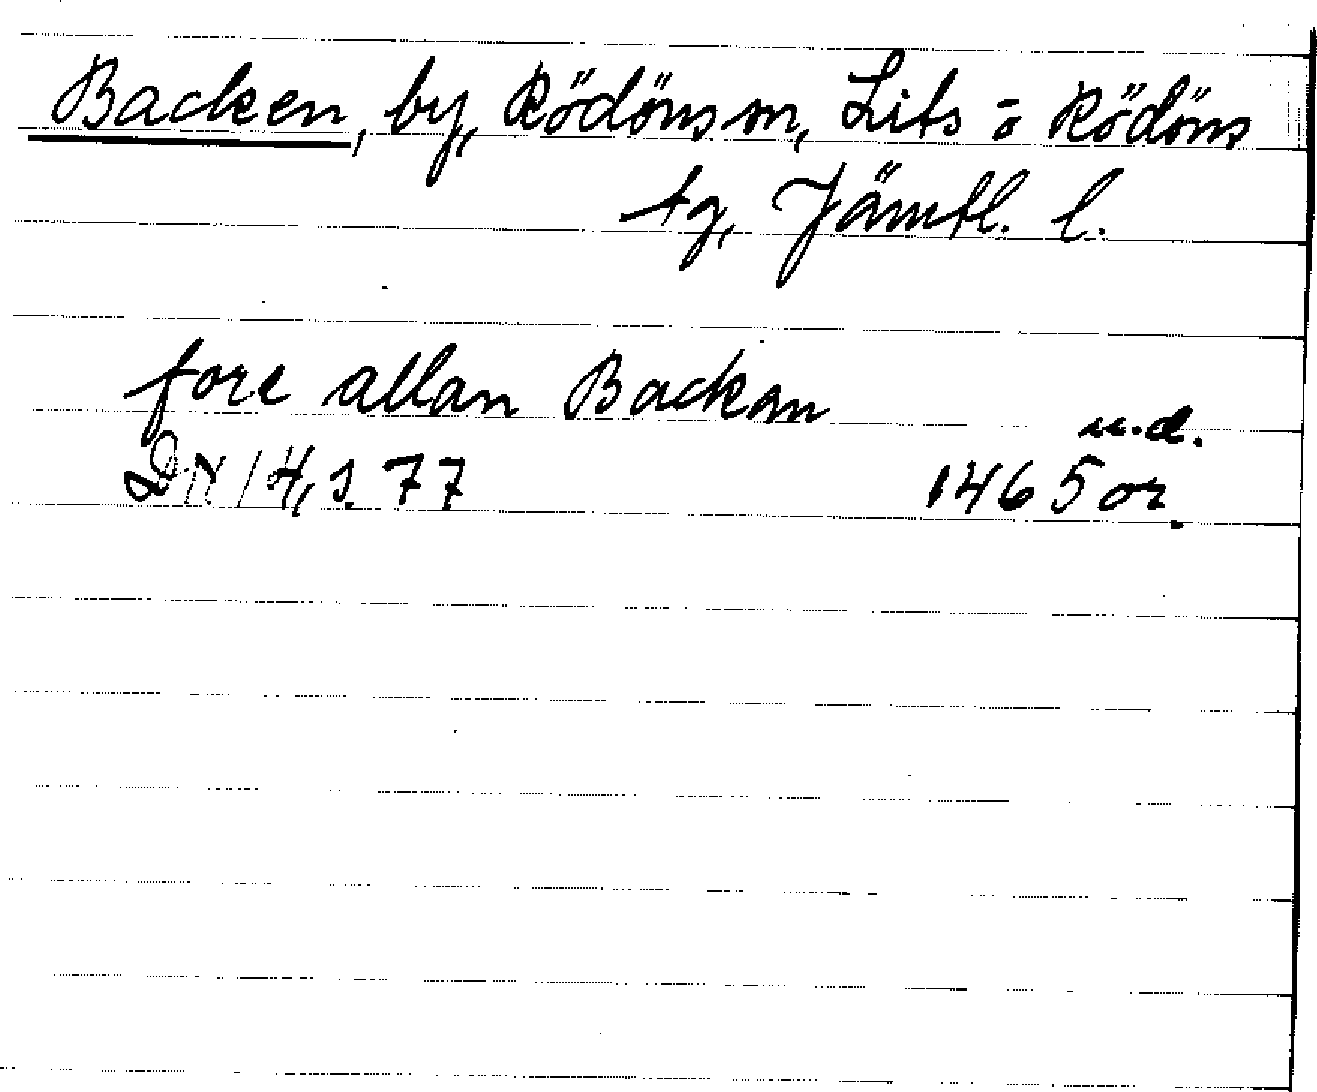 Backen, by, Rödöns sn, Lits o Rödöns
tg, Jämtl. l.
fore allan Backan
u.d.
DN 14, s. 77 1465 or.